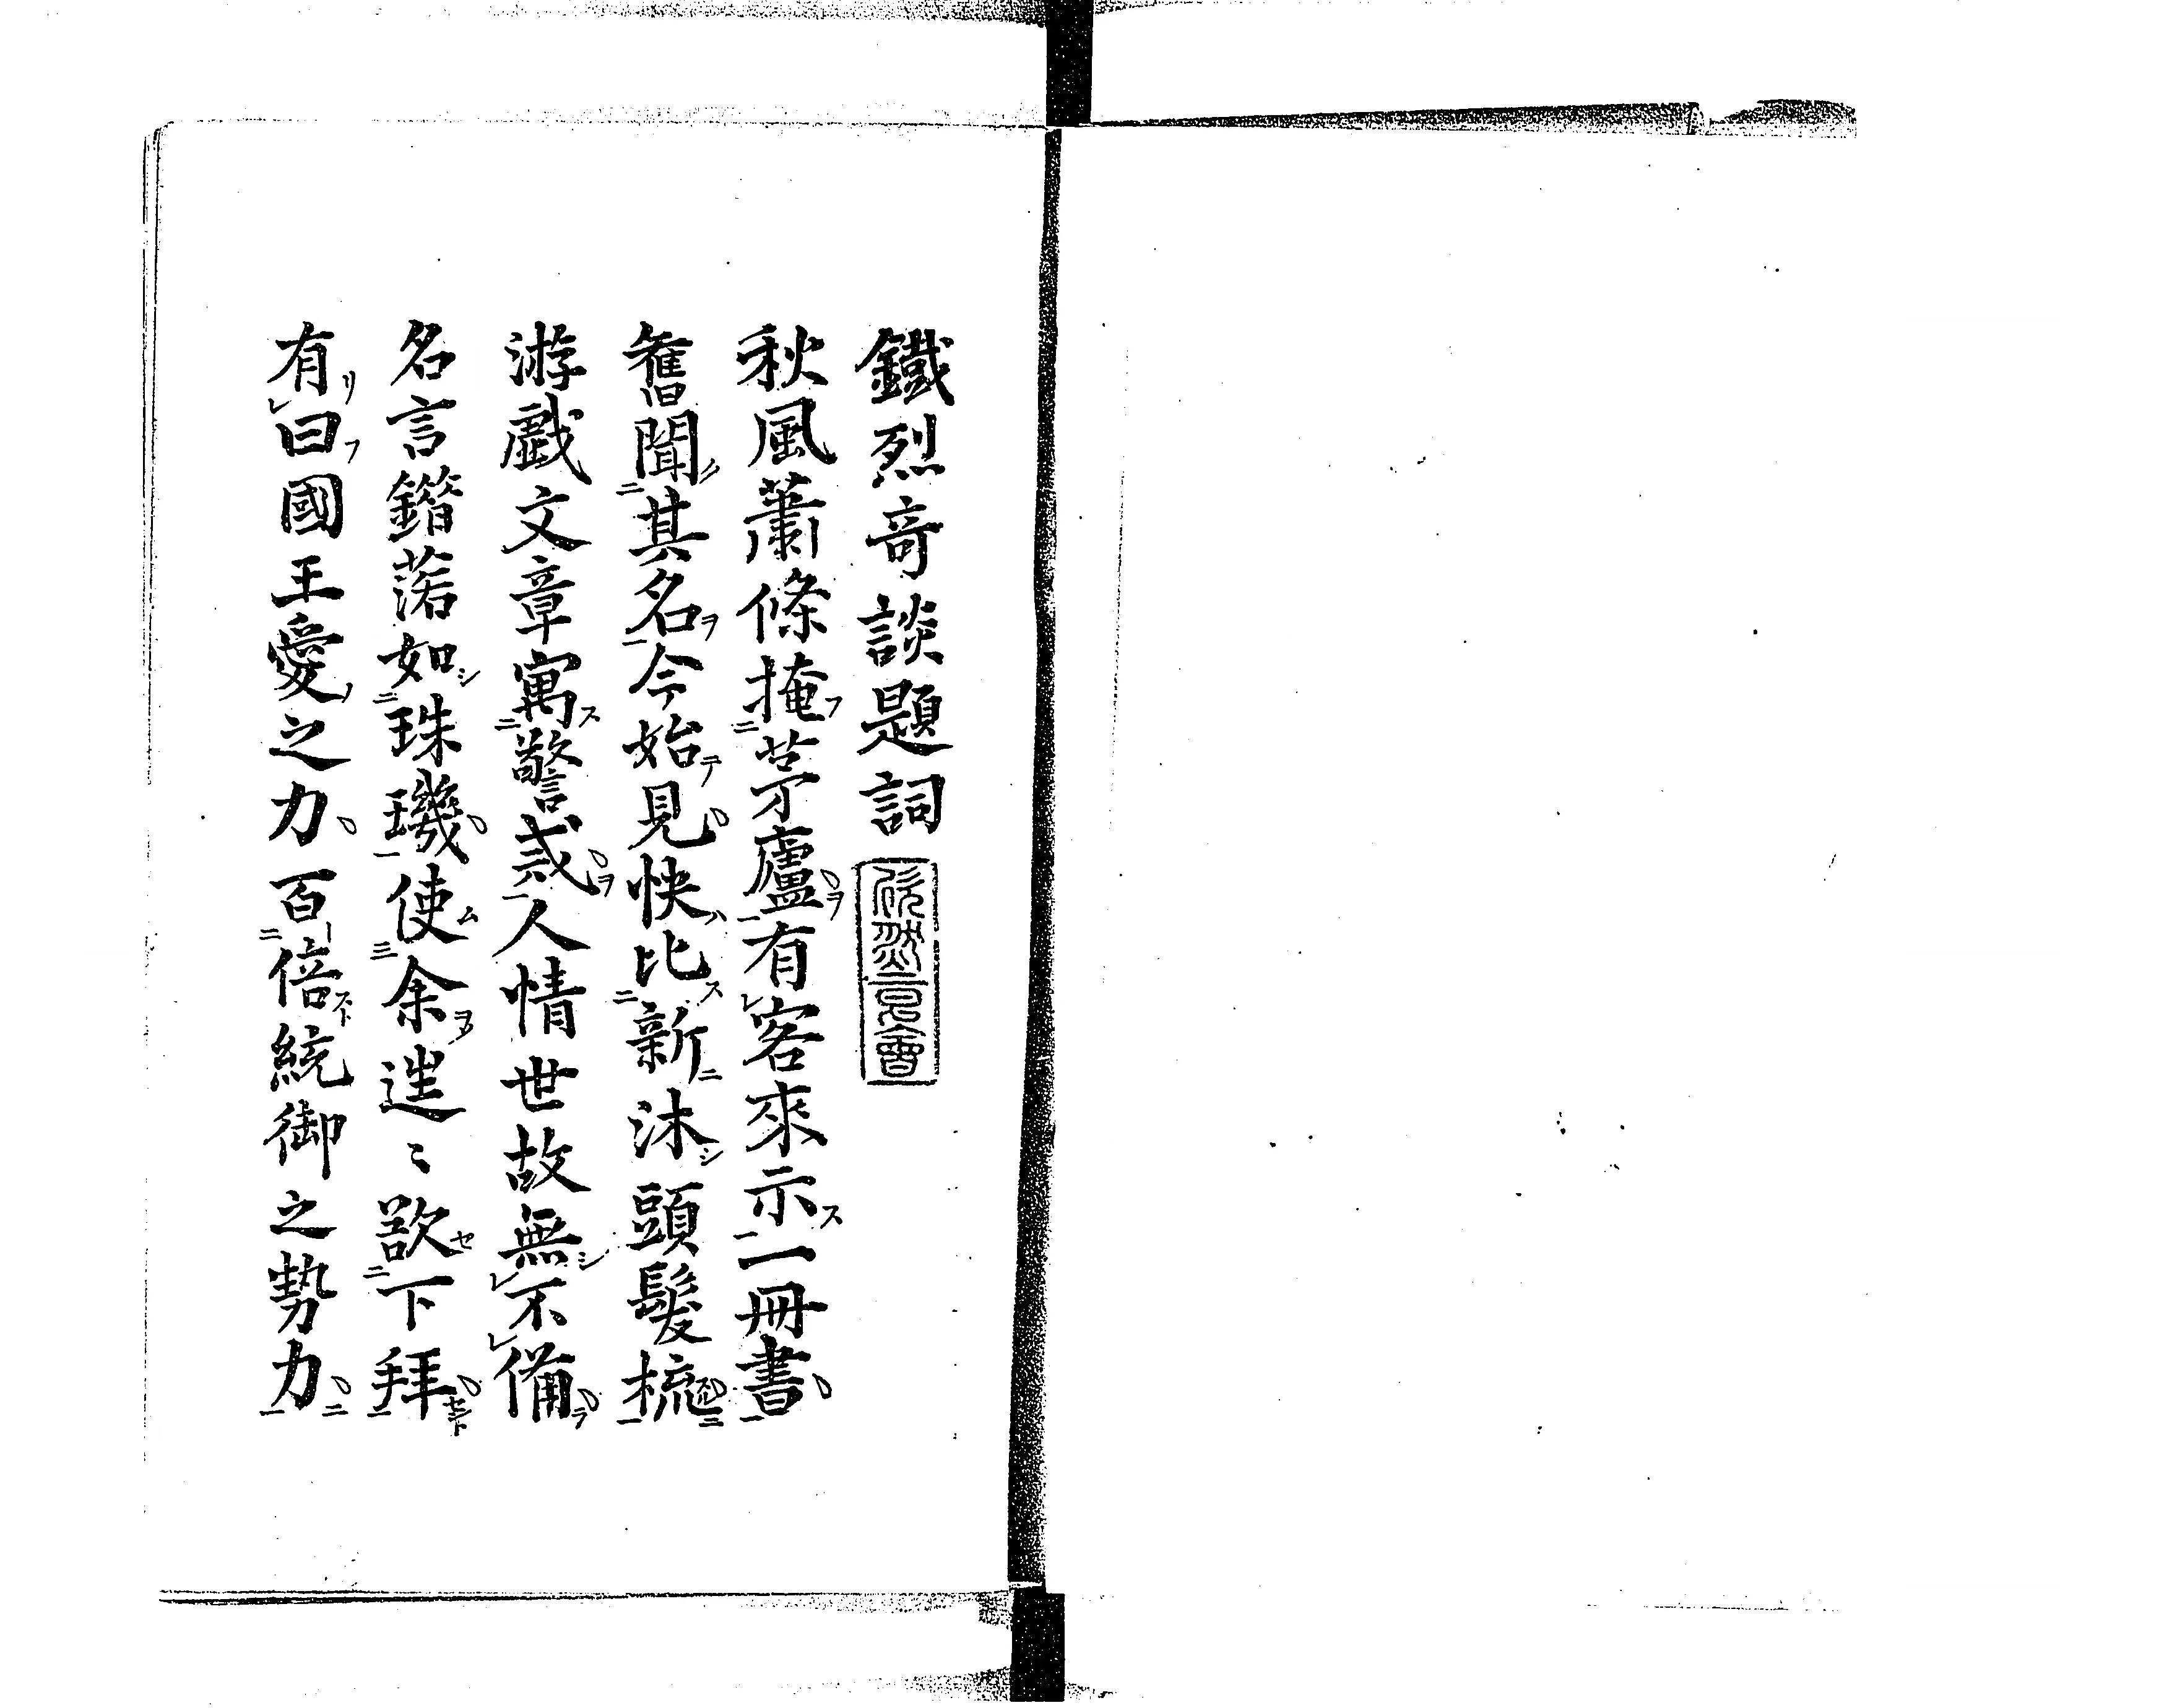 鐵烈奇談題詞
秋風蕭條掩茅廬有客來示一冊書
舊聞其名今始見快比新沐頭髮梳
游戲文章寓警誡人情世故無不備
名言錯落如珠璣使余𨓏〻欲下拜
有曰國王愛之力百倍統御之勢力